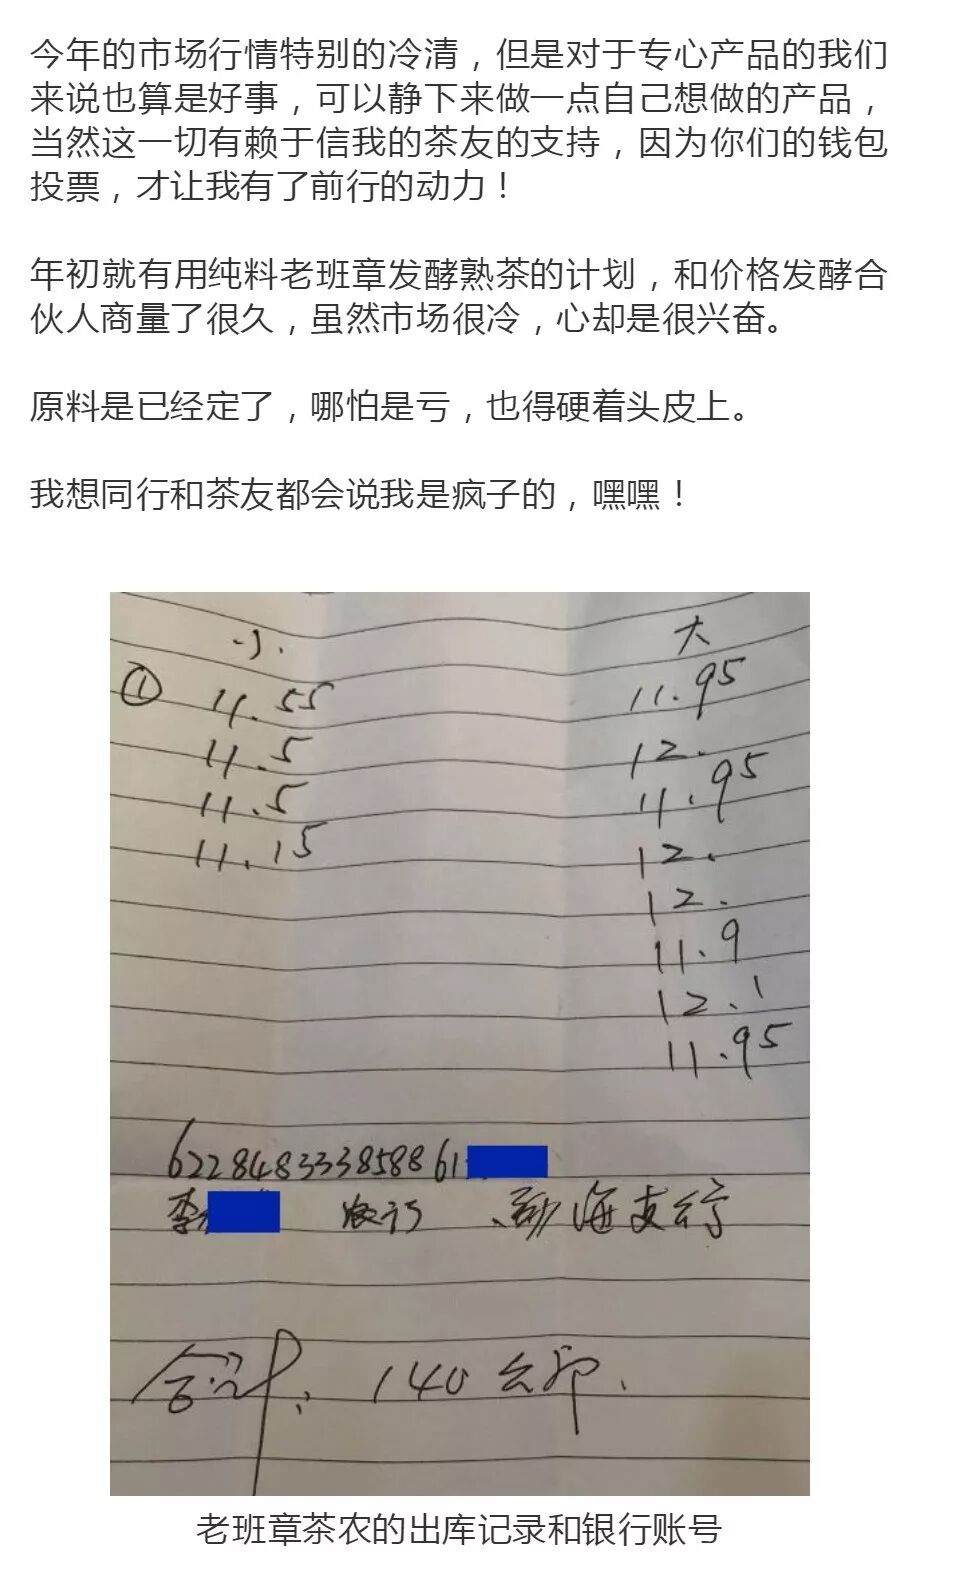 今年的市场行情特别的冷清，但是对于专心产品的我们
来说也算是好事，可以静下来做一点自己想做的产品，
当然这一切有赖于信我的茶友的支持，因为你们的钱包
投票，才让我有了前行的动力！
年初就有用纯料老班章发酵熟茶的计划，和价格发酵合
伙人商量了很久，虽然市场很冷，心却是很兴奋。
原料是已经定了，哪怕是亏，也得硬着头皮上。
我想同行和茶友都会说我是疯子的，嘿嘿！
小. 大
① 11.55 11.95
11.5 12.
11.5 11.95
11.15 12.
12.
11.9
12.1
11.95
622848333858861
李 农行 勐海支行
合计: 140公斤.
老班章茶农的出库记录和银行账号